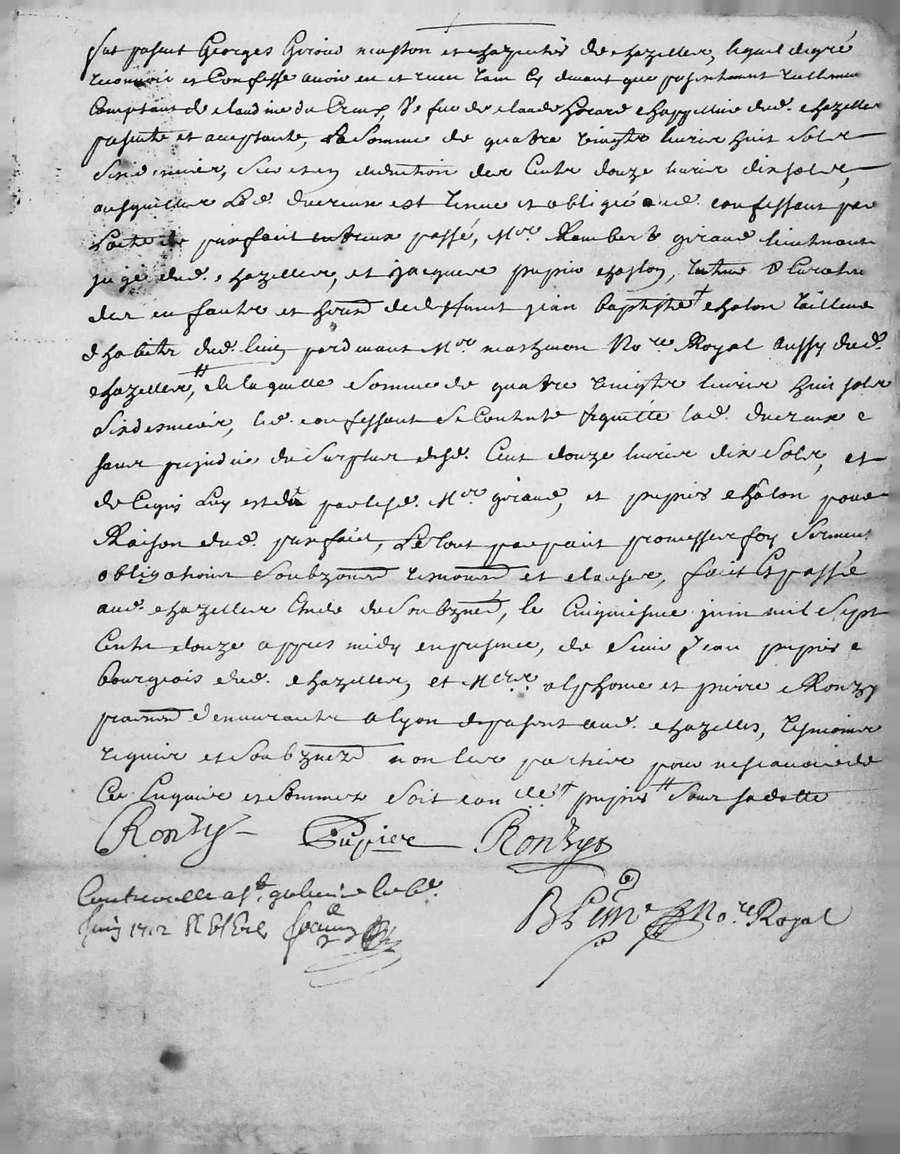 fut présent Georges Giroud masson et charpentier de chazelles, lequel de gré
reconnoit et Confesse avoir eu et receu tant cy devant que présentement réellement
Comptant de claudine du Creux, Ve feu de claude chappellier dud. chazelles
présente et acceptante, La Somme de quatre vingts livres huit sols
Six deniers, Sur et en deduction des Cents douze livres dix sols,
ausquelles Lad. ducreux est tenue et obligée aud. confessant par
prixfait entreux passé, Mre. Rambert giraud lieutenant
juge dud. chazelles, et jacques pupier chaslon, tuteur & Curateur
des enfants et de deffunt jean baptiste † chalon tailleur
d'habits dud. lieu pardevant Mre. mathevon Nore Royal aussy dud.
chazelles, de laquelle Somme de quatre vingts livres huit sols
Six deniers, led. confessant Se Contente & quitte lad. ducreux
Sans prejudice du Surplus desd. Cent douze livres dix Sols, et
de Ce quy Luy est dû par lesd. Mre. giraud, et pupier chalon pour
Raison dud. prixfait, Le tout par promesses foy Serment
obligations Soubzons renons et clauses, fait Et passé
aud. chazelles Etude du Soubzné, le Cinquiesme juin mil Sept
Cents douze apprès midy en présence, de Sieur Jean pupier
bourgeois dud. chazelles, et Mres. alphonse et pierre Ronzy
demeurants a lyon de présent aud. chazelles, tesmoins
requis et Soubznés non les parties pour ne sçavoir de
Ce Enquis et Sommés Soit con
Ronzy Pupier Ronzy
Controllé a St. galmier le 6e.
Juin 1712
Nore Royal